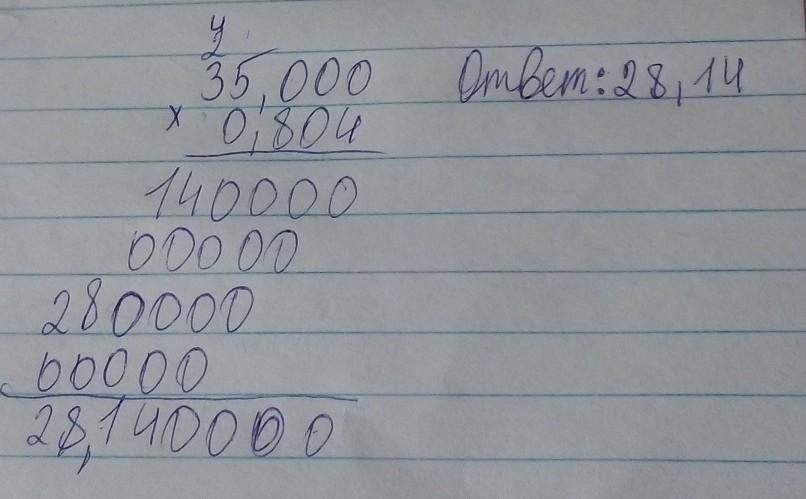 4
2
35,000 Ответ: 28,14
x 0,804
140000
00000
280000
00000
28,140000